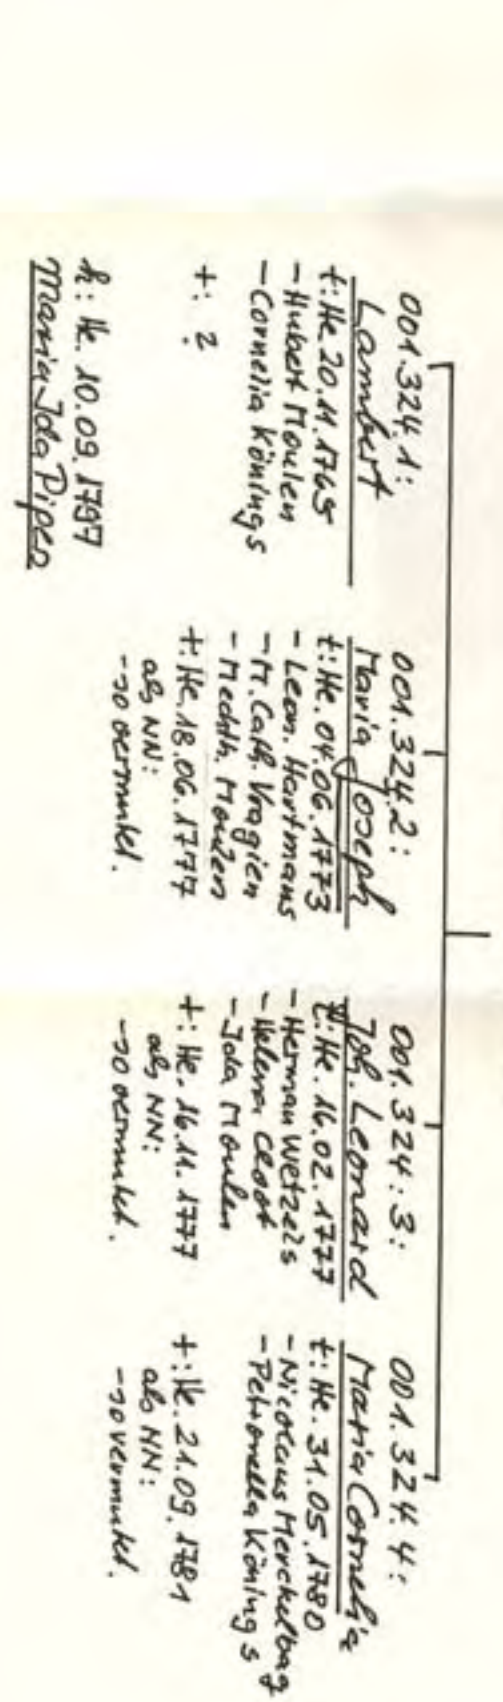 001.324.1:
Lambert
t: He 20.11.1765
- Hubert Moulen
- Cornelia Könings
+: ?
h: He. 10.09.1797
Maria Ida Pipers
001.324.2:
Maria Joseph
t: He. 04.06.1773
- Leon. Hartmans
- M. Cath. Vragien
- Mechth. Moulen
+: He. 18.06.1777
als NN:
-> vermutet.
001.324.3:
Joh. Leonard
t: He. 16.02.1777
- Herman Wetzels
- Helena Cloot
- Ida Moulen
+: He. 16.11.1777
als NN:
-> vermutet.
001.324.4:
Maria Cornelia
t: He. 31.05.1780
- Nicolaus Merckelbag
- Petronella Könings
+: He. 21.09.1781
als NN:
-> vermutet.